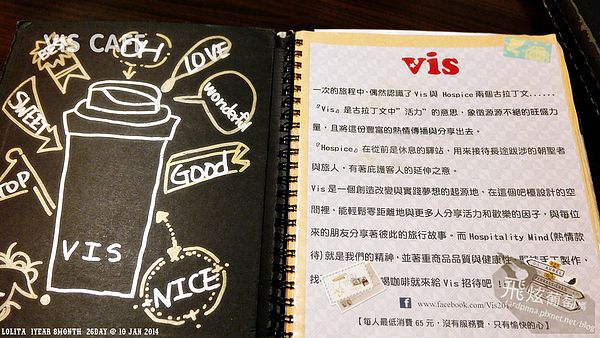 VIS CAFE
LOVE
wonderful
SWEET
GOOD
TOP
VIS
NICE
LOLITA 1YEAR 8MONTH 26DAY @ 10 JAN 2014
vis
一次的旅程中,偶然認識了Vis與 Hospice兩個古拉丁文......
『Vis』是古拉丁文中"活力"的意思,象徵源源不絕的旺盛力
量,且將這份豐富的熱情傳播與分享出去。
『Hospice』在從前是休息的驛站,用來接待長途跋涉的朝聖者
與旅人,有著庇護客人的延伸之意。
Vis是一個創造改變與實踐夢想的起源地,在這個吧檯設計的空
間裡,能輕鬆零距離地與更多人分享活力和歡樂的因子,與每位
來的朋友分享著彼此的旅行故事。而Hospitality Mind(熱情款
待)就是我們的精神,並著重商品品質與健康性,堅持手工製作,
找 喝咖啡就來給Vis招待吧!
www.facebook.com/Vis201
【每人最低消費 65 元,沒有服務費,只有愉快的心】
飛炫葡萄
rdpnna.pixnet.net/blog